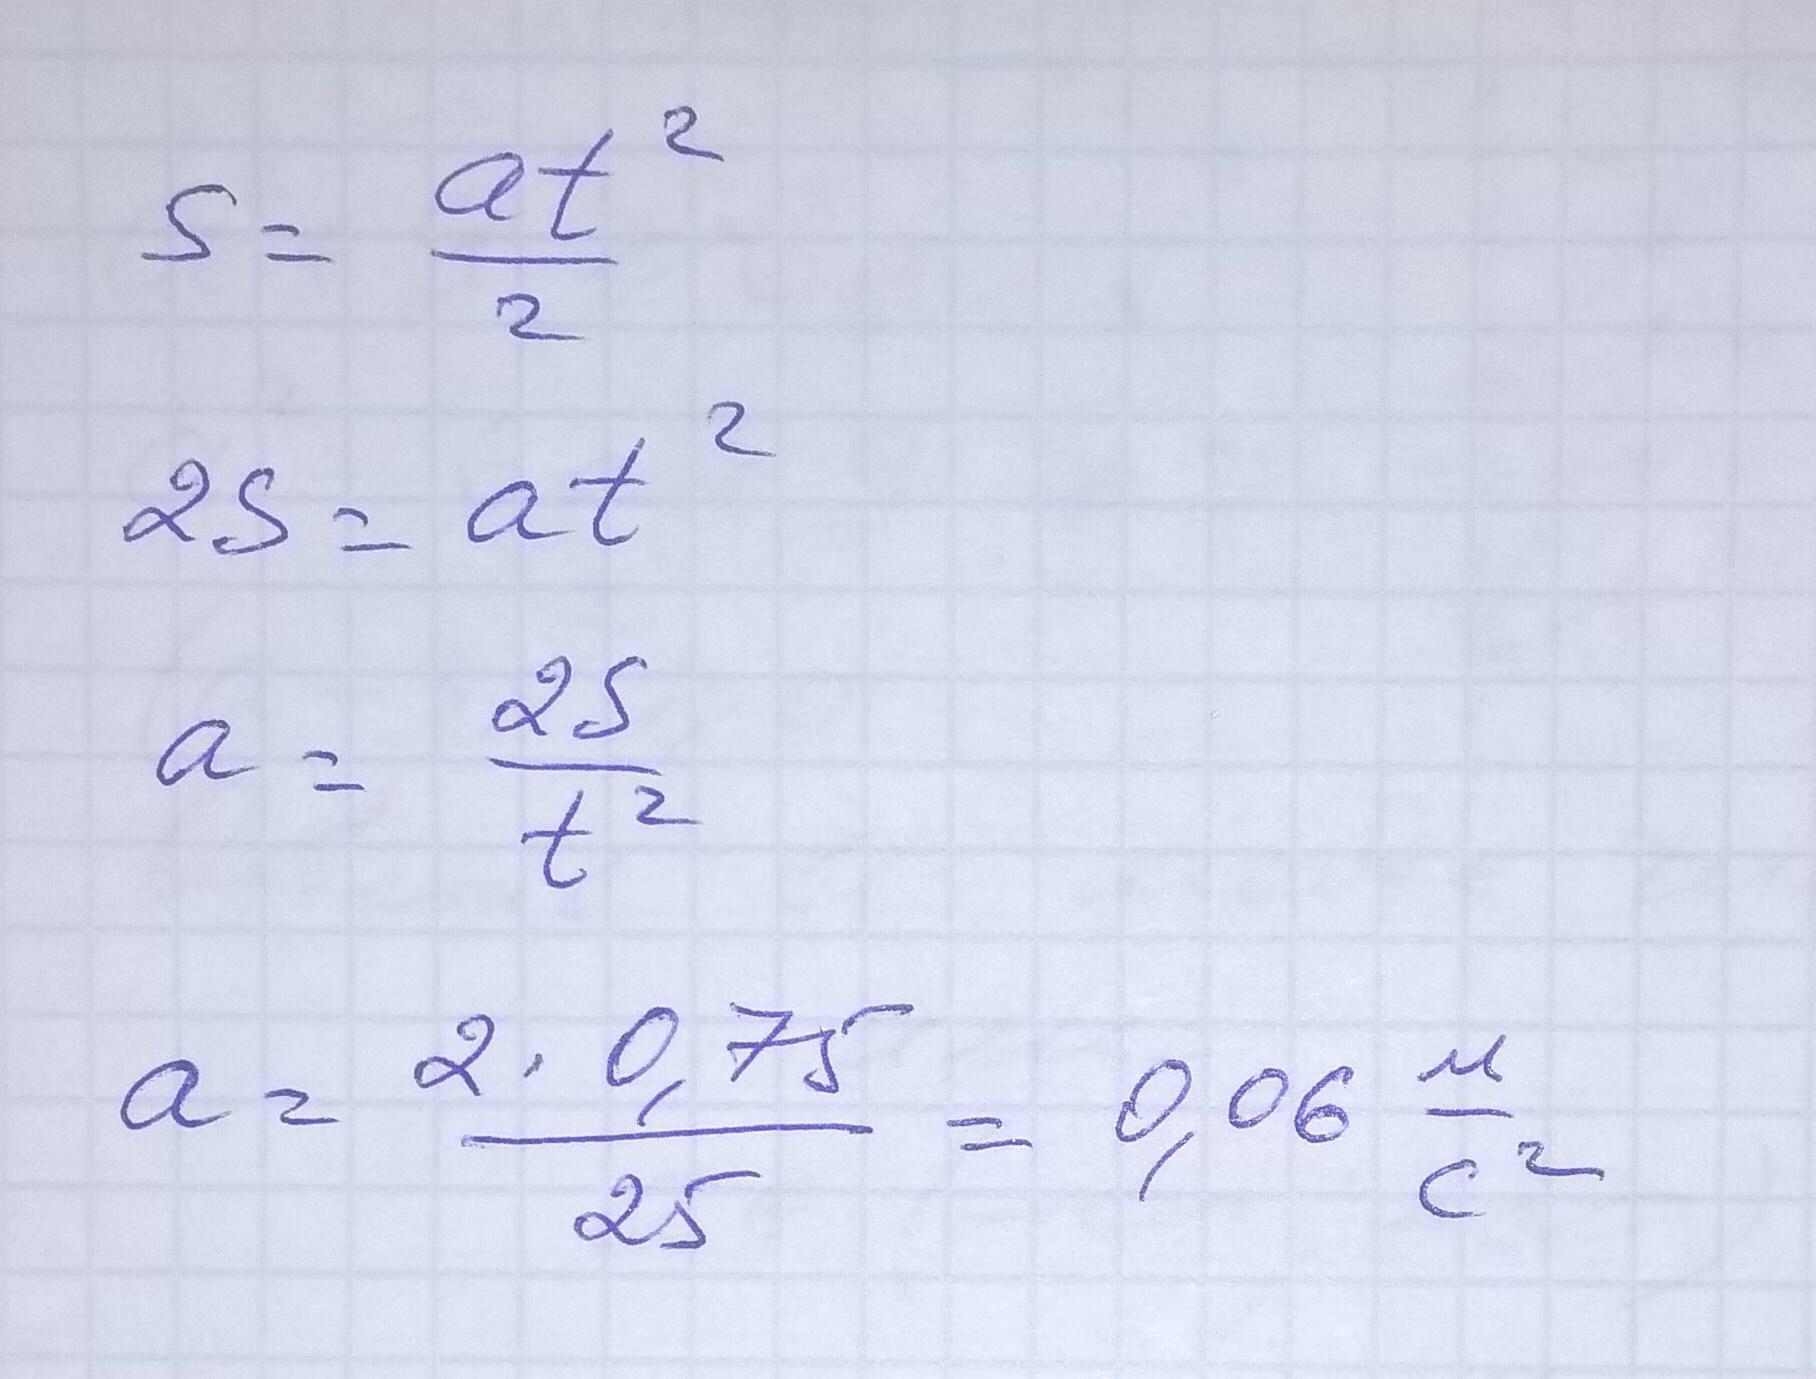 S = at²/2
2S = at²
a = 2S/t²
a = 2·0,75/25 = 0,06 м/с²